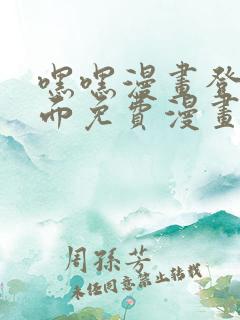 嘿嘿漫畫登
面免費漫畫
周孫芳
未经同意禁止转载